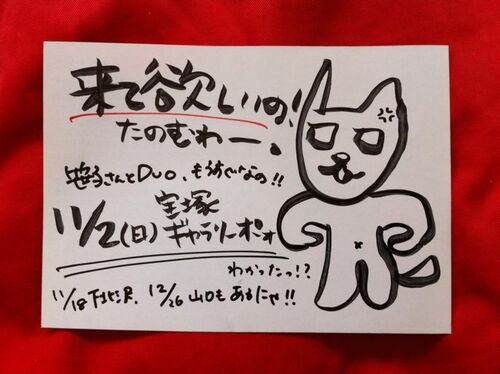 来て欲しいの!
たのむわー。
笹子さんとDuo、もうすぐなの!!
11/2(日) 宝塚
ギャラリーポポ
わかったっ!?
11/18下北沢、12/26山口もあるにゃ!!